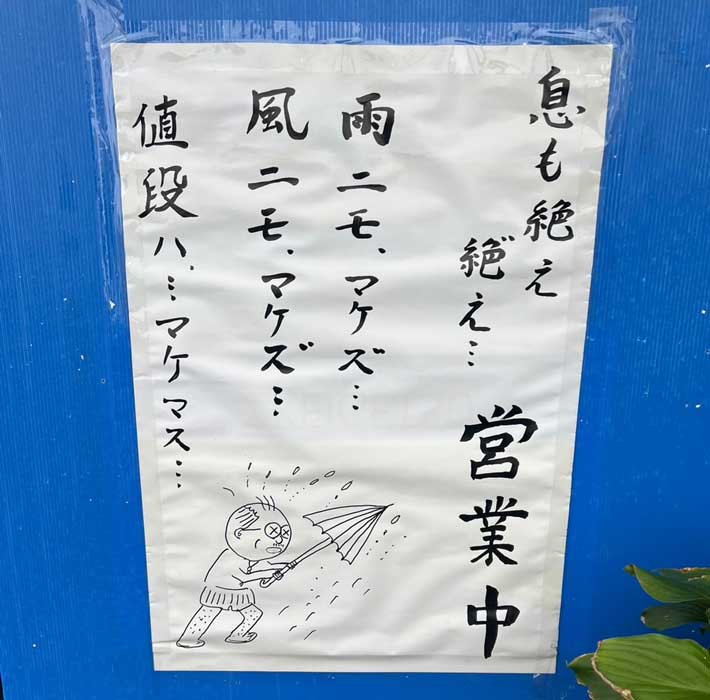 息も絶え
絶゛え…
営業中
雨ニモ、マケズ…
風ニモ、マケズ…
値段ハ、…マケマス…